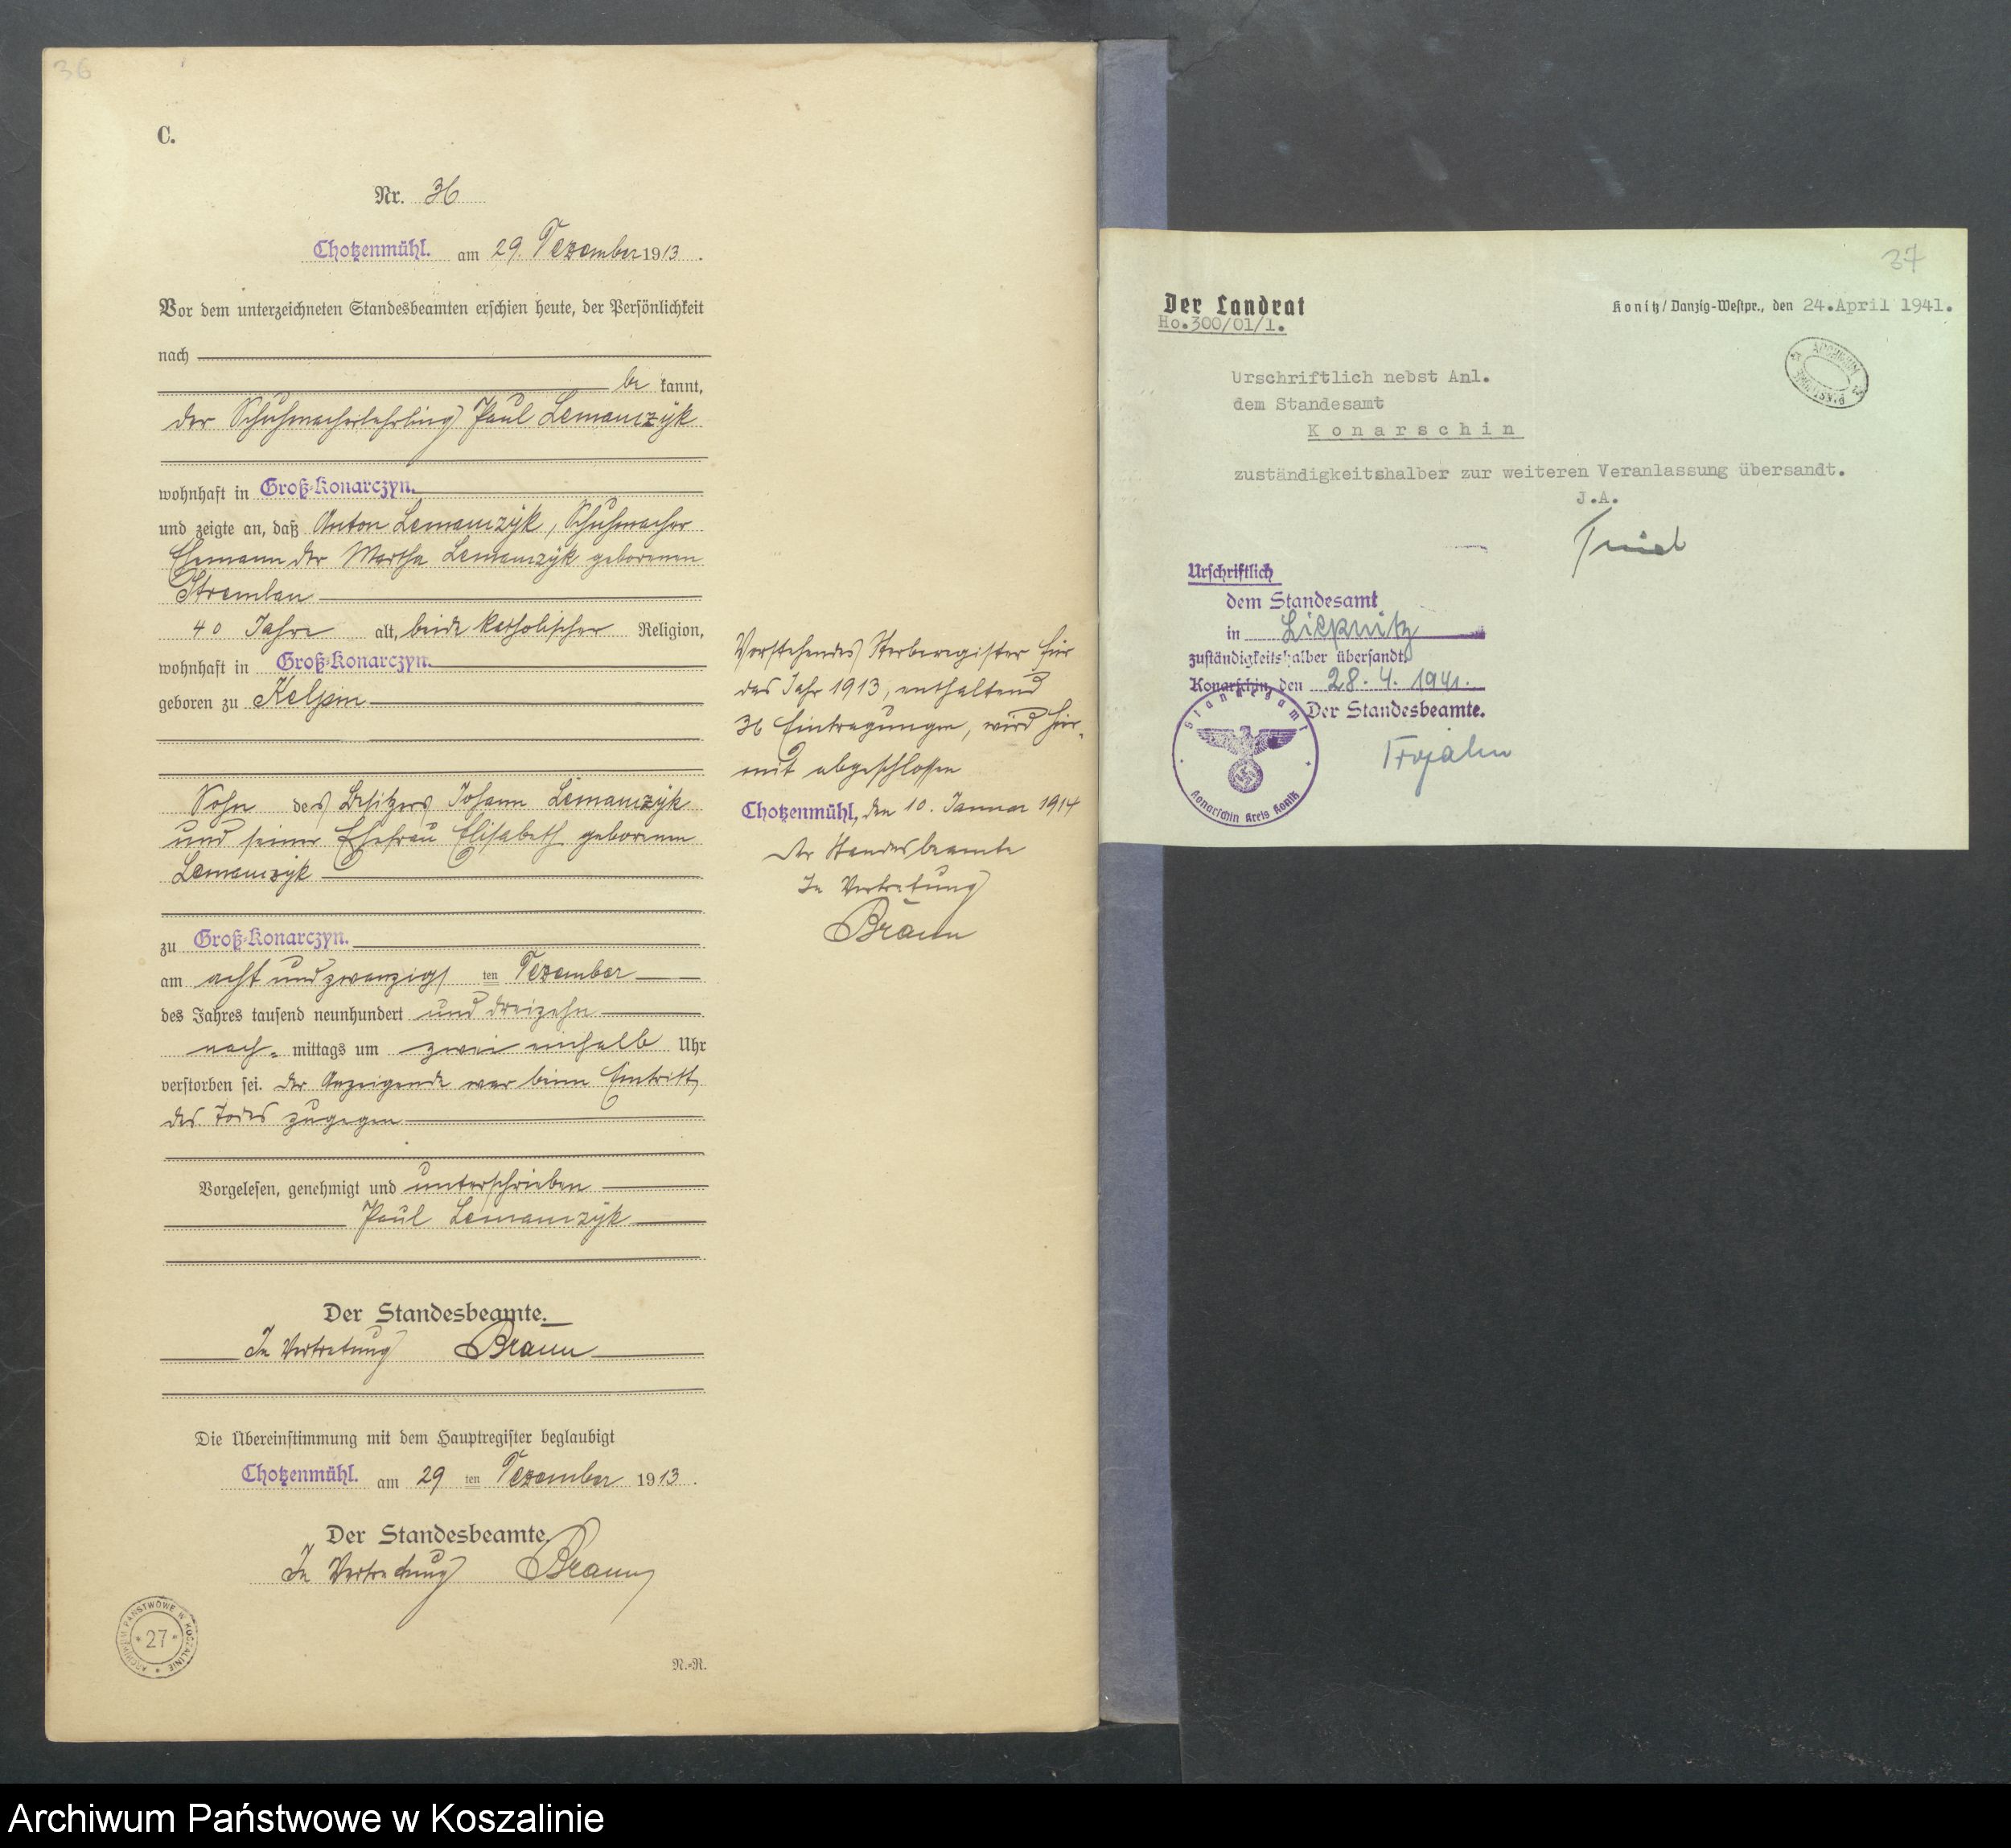 36
C.
Nr. 36
Chotzenmühl. am 29. Dezember 1913.
Vor dem unterzeichneten Standesbeamten erschien heute, der Persönlichkeit
nach
be kannt,
der Schuhmacherlehrling Paul Lemanczyk
wohnhaft in Groß-Konarczyn.
und zeigte an, daß Anton Lemanczyk, Schuhmacher
Ehemann der Martha Lemanczyk geborenen
Stremlau
40 Jahre alt, beide katholischer Religion,
wohnhaft in Groß-Konarczyn.
geboren zu Kelpin
Sohn des Besitzers Johann Lemanczyk
und seiner Ehefrau Elisabeth geborenen
Lemanczyk
zu Groß-Konarczyn.
am acht und zwanzigs ten Dezember
des Jahres tausend neunhundert und dreizehn
nach- mittags um zwei einhalb Uhr
verstorben sei. Der Anzeigende war beim Eintritt
des Todes zugegen
Vorgelesen, genehmigt und unterschrieben
Paul Lemanczyk
Der Standesbeamte.
In Vertretung Braun
Die Übereinstimmung mit dem Hauptregister beglaubigt
Chotzenmühl. am 29 ten Dezember 1913.
Der Standesbeamte.
In Vertretung Braun
ARCHIWUM PAŃSTWOWE W KOSZALINIE
* 27 *
N.-R.
Vorstehendes Sterberegister für
das Jahr 1913, enthaltend
36 Eintragungen, wird hier-
mit abgeschlossen
Chotzenmühl, den 10. Januar 1914
Der Standesbeamte
In Vertretung
Braun
37
Der Landrat
Ho.300/01/1.
Konitz/Danzig-Westpr., den 24.April 1941.
Urschriftlich nebst Anl.
dem Standesamt
Konarschin
zuständigkeitshalber zur weiteren Veranlassung übersandt.
J.A.
Urschriftlich
dem Standesamt
in Liepnitz
zuständigkeitshalber übersandt.
Konarschin, den 28. 4. 1941.
Der Standesbeamte.
Standesamt
Konarschin Kreis Konitz
Archiwum Państwowe w Koszalinie